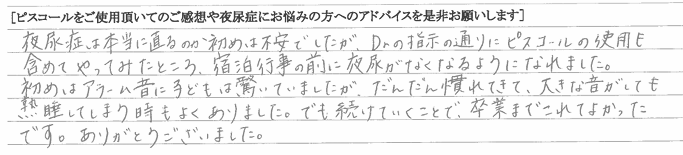 [ピスコールをご使用頂いてのご感想や夜尿症にお悩みの方へのアドバイスを是非お願いします]
夜尿症は本当に直るのか初めは不安でしたが、Drの指示の通りにピスコールの使用も
含めてやってみたところ、宿泊行事の前に夜尿がなくなるようになれました。
初めはアラーム音に子どもは驚いていましたが、だんだん慣れてきて、大きな音がしても
熟睡してしまう時もよくありました。でも続けていくことで、卒業までこれてよかった
です。ありがとうございました。